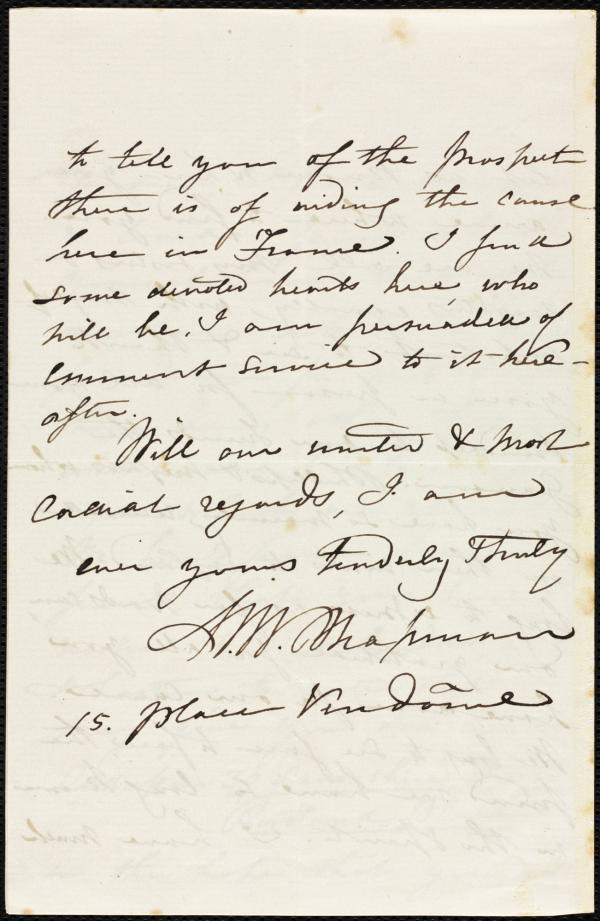 to tell you of the prospect
there is of aiding the cause
here in France. I find
some devoted hearts here, who
will be, I am persuaded of
eminent service to it here-
after.
With our united & most
cordial regards, I am
ever yours tenderly & truly
M.W. Chapman
15. place Vendôme